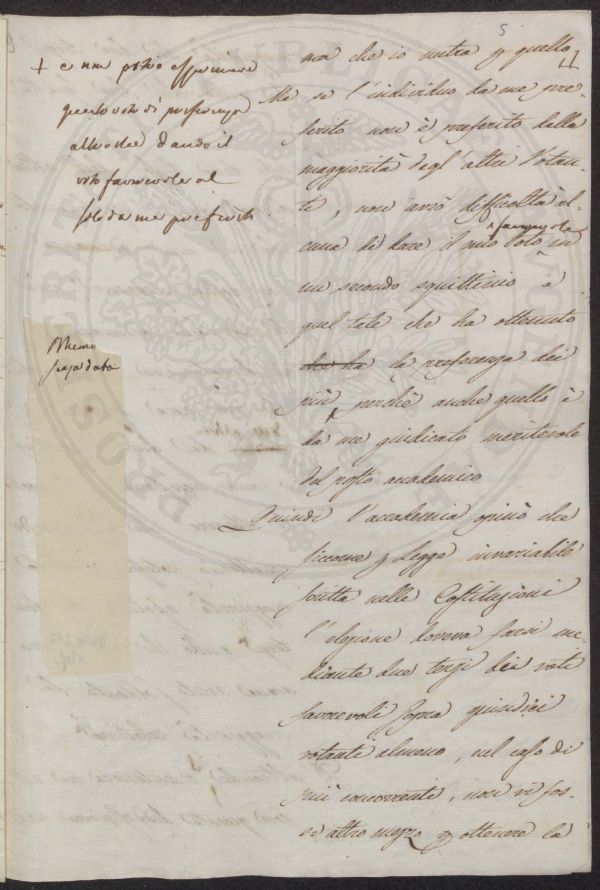 5
+ e non potrò esprimere
questo voto di preferenza
altro che dando il
voto favorevole al
solo da me preferito
Memo
senza data
ma che io nutra p quello
Ma se l'individuo da me pre-
ferito non è preferito dalla
maggiorità degl'altri Votan-
ti, non avrò difficoltà al-
cuna di dare il mio Voto favorevole in
un secondo squittinio a
quel tale che ha ottenuto
che ha la preferenza dei
più perchè anche quello è
da me giudicato meritevole
del posto accademico
Quindi l'accademia opinò che
siccome p Legge invariabile
scritta nelle Costituzioni
l'elezione doveva farsi me-
diante due terzi dei voti
favorevoli sopra quindici
votanti almeno, nel caso di
più concorrenti, non vi fos-
se altro mezzo p ottenere la